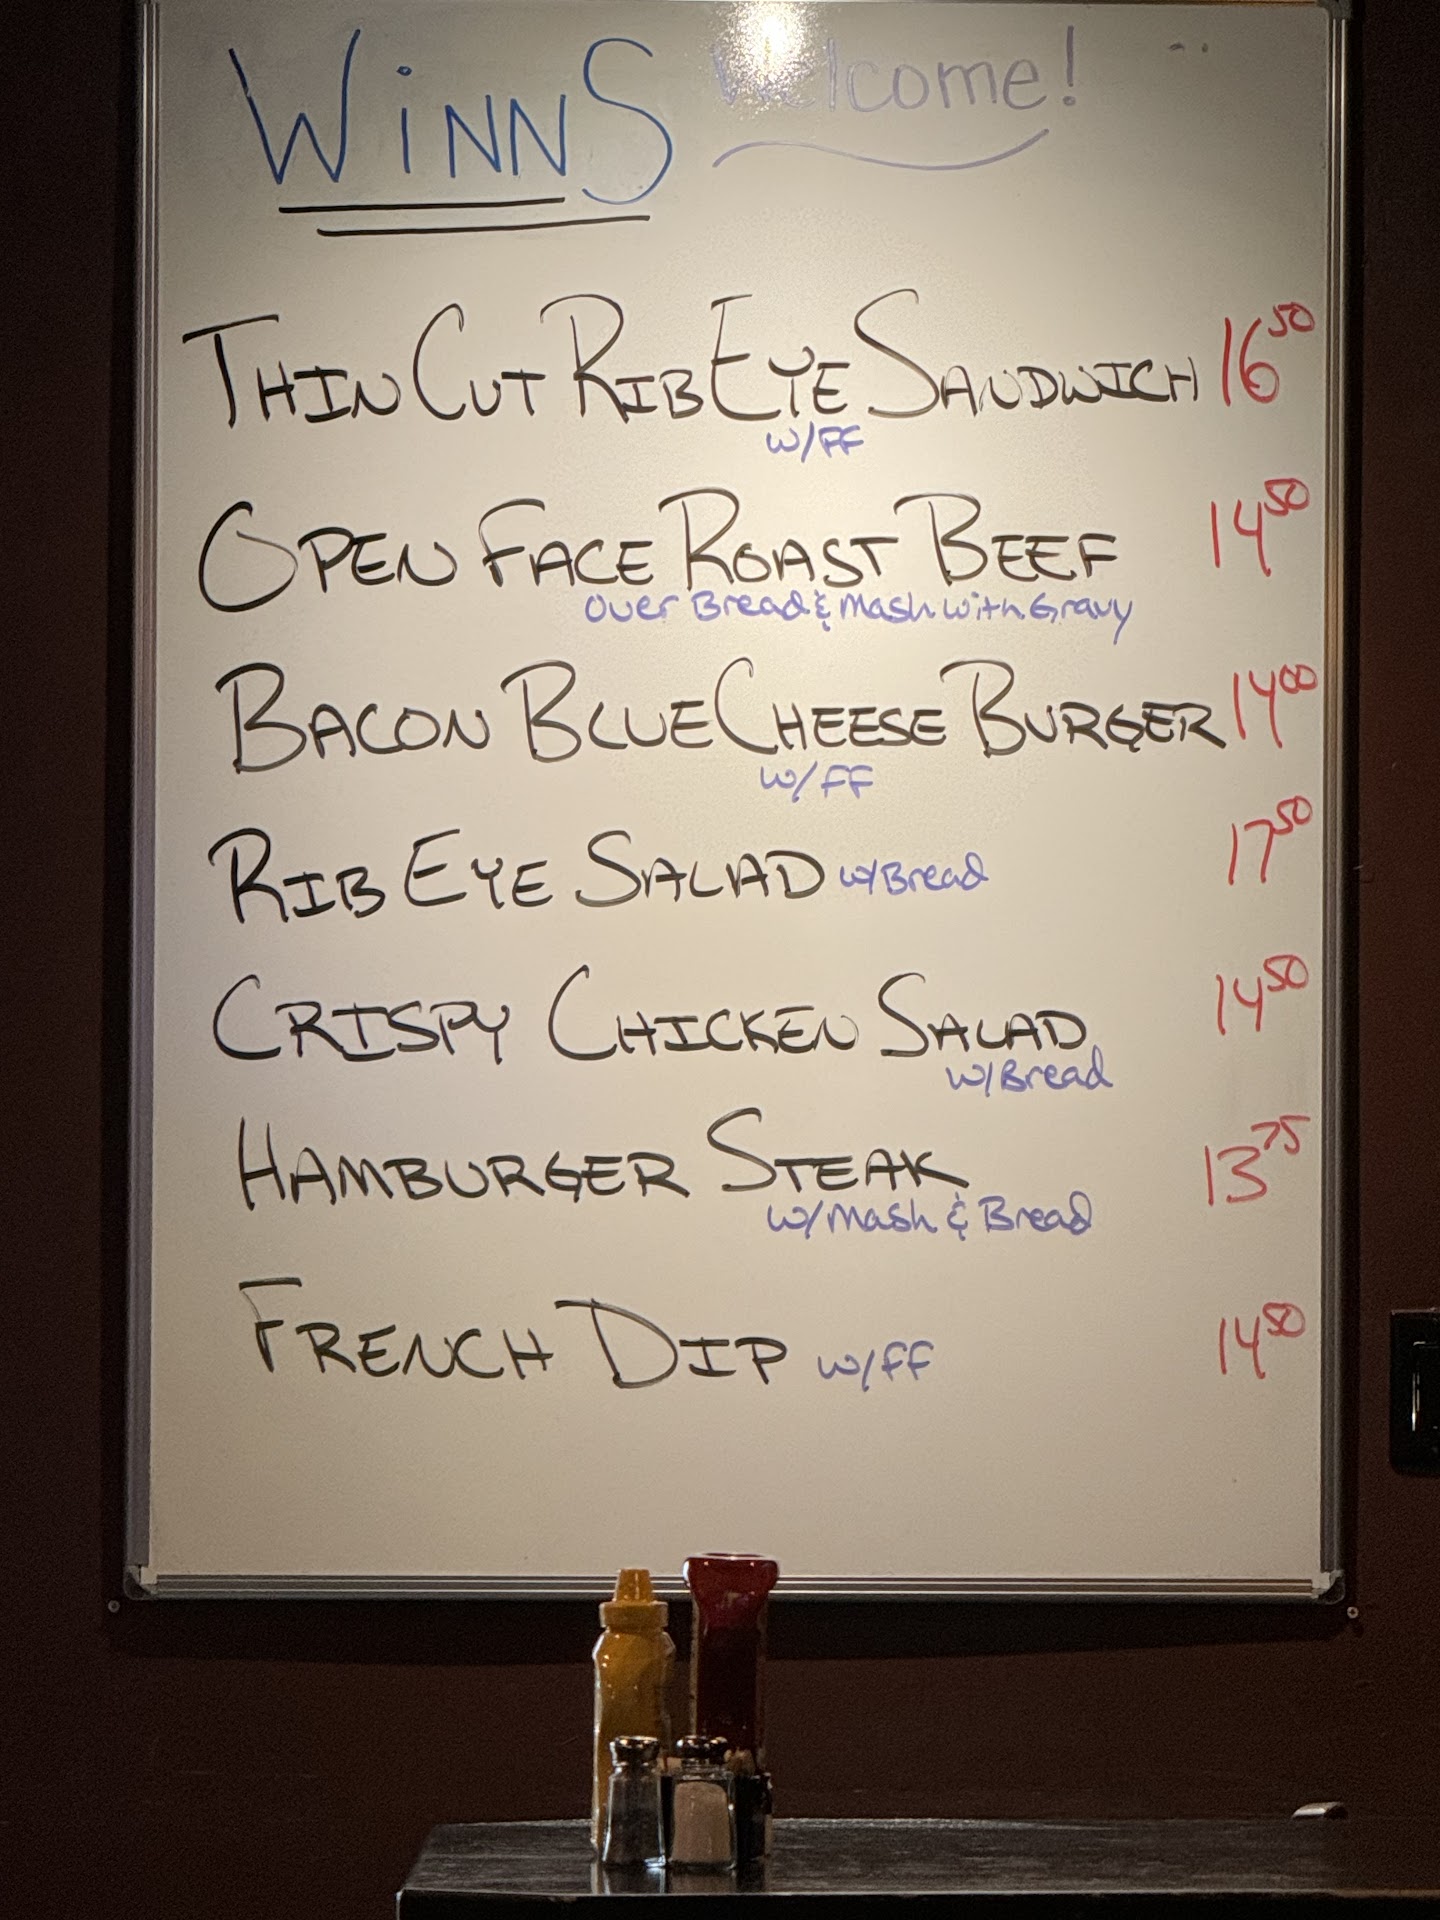 WiNNS Welcome!
THIN CUT RIB EYE SANDWICH 16⁵⁰
w/FF
OPEN FACE ROAST BEEF 14⁵⁰
over Bread & Mash with Gravy
BACON BLUE CHEESE BURGER 14⁰⁰
w/FF
RIB EYE SALAD w/Bread 17⁵⁰
CRISPY CHICKEN SALAD 14⁵⁰
w/Bread
HAMBURGER STEAK 13⁷⁵
w/Mash & Bread
FRENCH DIP w/FF 14⁵⁰